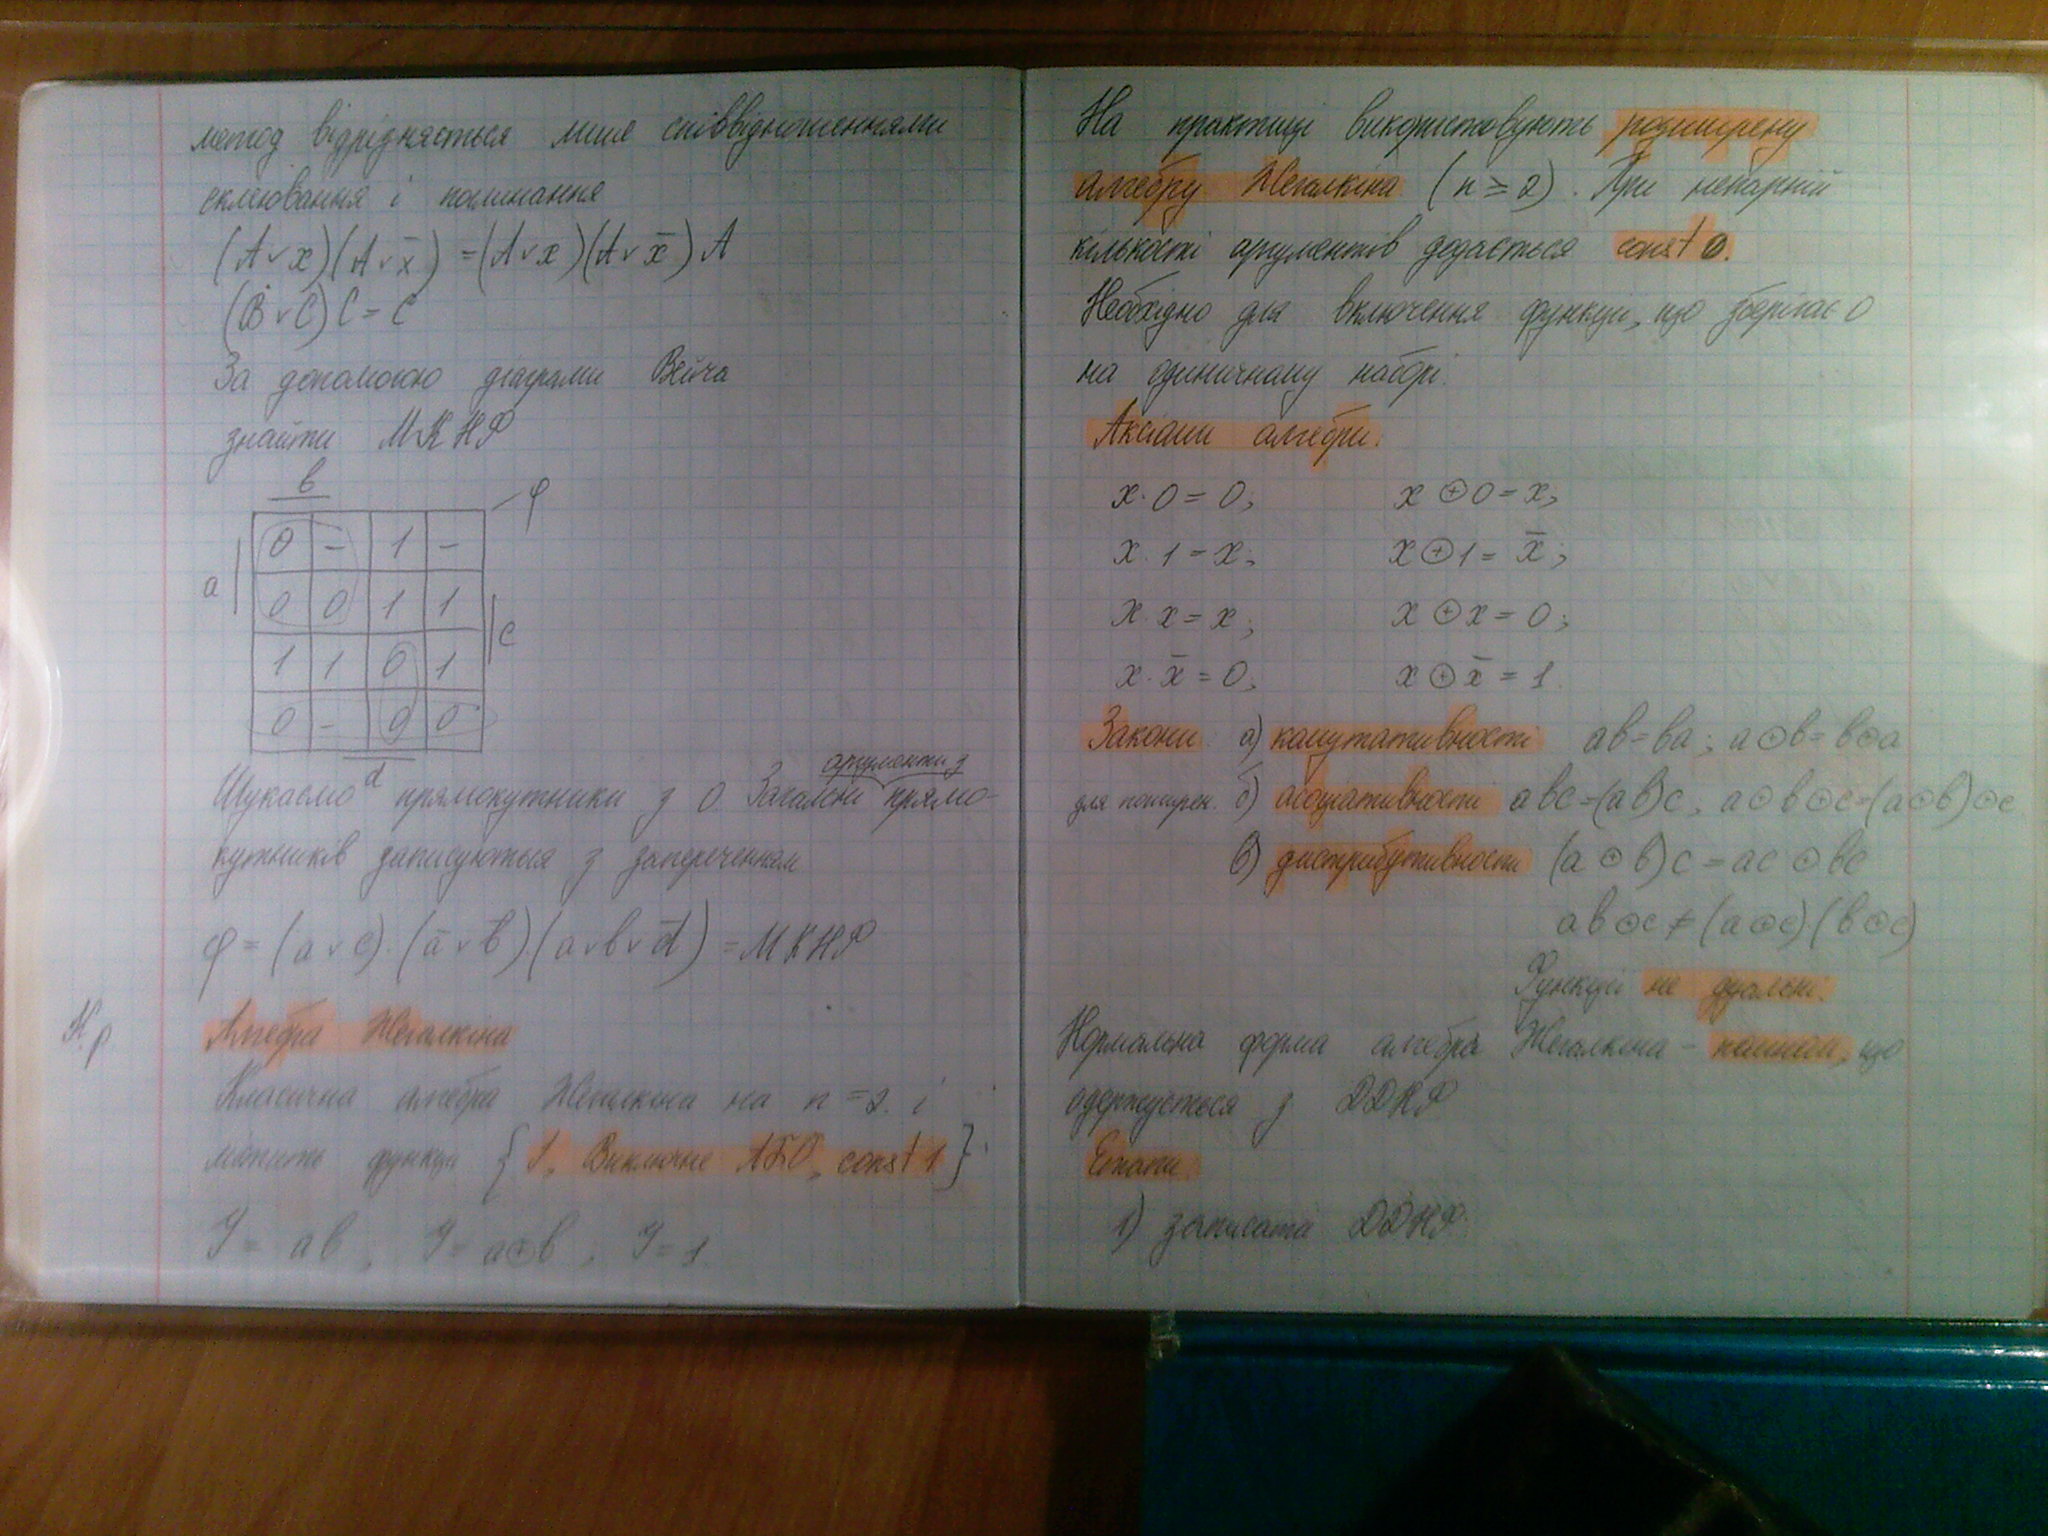 метод відрізняється лише співвідношеннями
склеювання і поглинання
(A∨x)(A∨x̄) = (A∨x)(A∨x̄)A
(B∨C)C = C
За допомогою діаграми Вейча
знайти МКНФ
b
φ
0 - 1 -
a
0 0 1 1
c
1 1 0 1
0 - 0 0
d
аргументи з
Шукаємо прямокутники з 0. Загальні прямо-
кутників записуються з запереченням
φ = (a∨c)·(ā∨b̄)·(a∨b∨d̄) = МКНФ
Н.р
Алгебра Жегалкіна
Класична алгебра Жегалкіна на n=2 і
містить функції {І, Виключне АБО, const 1}
У = ab, У = a⊕b, У = 1
На практиці використовують розширену
алгебру Жегалкіна (n ≥ 2). При непарній
кількості аргументів додається const 0.
Необхідно для включення функції, що зберігає 0
на одиничному наборі.
Аксіоми алгебри:
x·0 = 0; x⊕0 = x;
x·1 = x; x⊕1 = x̄;
x·x = x; x⊕x = 0;
x·x̄ = 0; x⊕x̄ = 1.
Закони: а) комутативності ab = ba; a⊕b = b⊕a
для поширен. б) асоціативності abc = (ab)c; a⊕b⊕c = (a⊕b)⊕c
в) дистрибутивності (a⊕b)c = ac⊕bc
ab⊕c ≠ (a⊕c)·(b⊕c)
Функції не дуальні.
Нормальна форма алгебра Жегалкіна - поліном, що
одержується з ДДНФ
Етапи:
1) записати ДДНФ